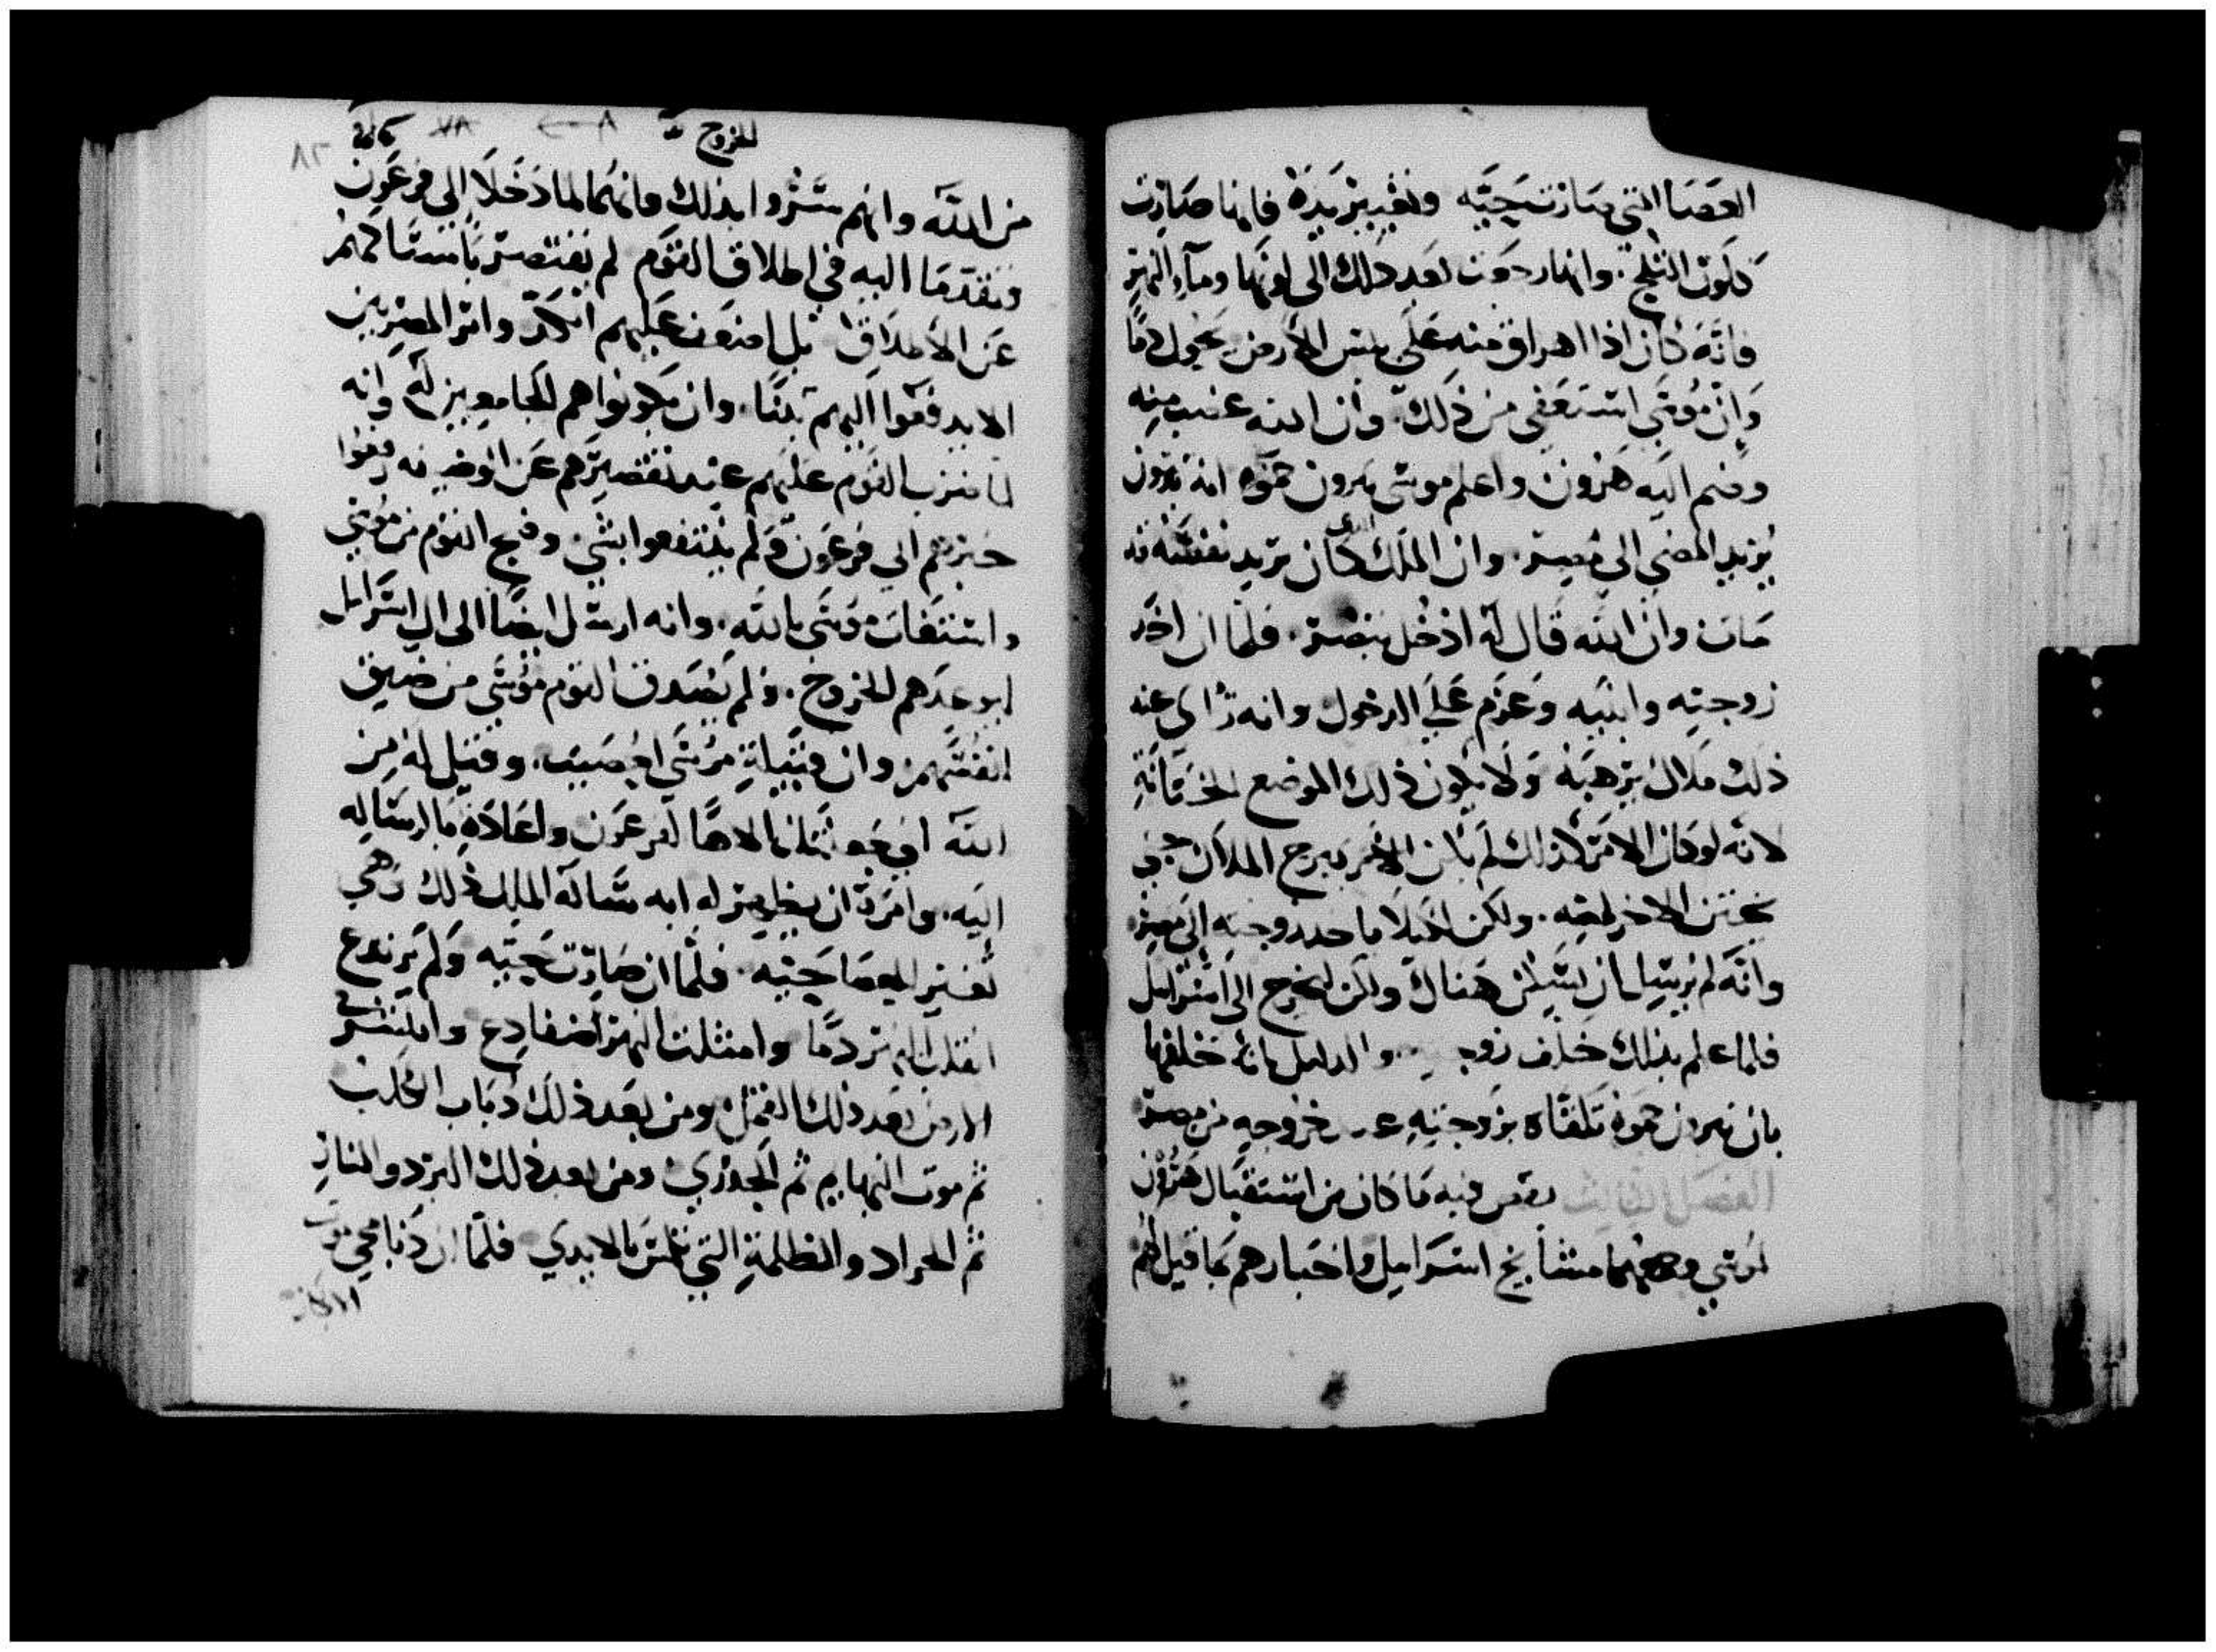 العصا التي صارت حية وتغيير يده فانها صارت
كلون الثلج. وانها رجعت بعد ذلك الى لونها وماء النهر
فانه كان اذا اهراق منه على يبس الارض يحول دما
وان موسى استعفى من ذلك. وان الله عتب منه
وضم اليه هرون واعلم موسى يثرون حموه انه
يريد المضي الى مصر. وان الملك الدي كان يريد نفسه قد
مات وان الله قال له ادخل بمصر. فلما ان اخد
زوجته وابنيه وعزم على الدخول وانه راى عند
ذلك ملاك يرهبه ولا يكون ذلك الموضع الختانة
لانه لوكان الامر كذلك لم يكن الامر يبرح الملاك حتى
يختن الاخر لصه. ولكن لكيلا ياخد زوجته الى مصر
وانه لم يرسل ان يسكن هناك ولكن ليخرج الى اسرايل
فلما علم بذلك خلف والدليل بانه خلفها
بان يثرون حموه تلقاه بزوجته خروجه من مصر
الفصل الثالث يقص فيه ما كان من استقبال هرون
لموسى وجمعهما مشايخ اسرايل واخبارهم بما قيل لهم
الخروج
من الله وانهم سروا بذلك وانهما لما دخلا الى فرعون
وتقدما اليه في اطلاق القوم لم يقتصر بامساكهم
عن الاطلاق بل اضعف عليهم الكد وامر المصريين
الا يدفعوا اليهم تبنا. وان يكونوا هم الجامعين له وانه
لما ضرب القوم عليهم عند تقصيرهم عن رفعوا
خبرهم الى فرعون ولم ينتفعوا بشي وضج القوم من موسى
واستغاث موسى بالله. وانه ارسل ايضا الى ال اسرايل
ليوعدهم للخروج. ولم يصدق القوم موسى من ضيق
انفسهم وان قبيلة موسى وقيل له من
الله اني جعلتك الاها لفرعون واعاده بالرساله
اليه. وامره ان يظهر له ايه ساله الملك ذلك وهي
تغيير العصا حية. فلما ان صارت حية ولم يرتدع
انقلب النهر دما وامتلت النهر ضفادع
الارض بعد ذلك القمل ومن بعد ذلك ذباب الكلب
ثم موت البهايم ثم الجدري ومن بعد ذلك البرد والنار
ثم الجراد والظلمة التي تلمس بالايدي فلما ان دنا مجي موت
الابكار